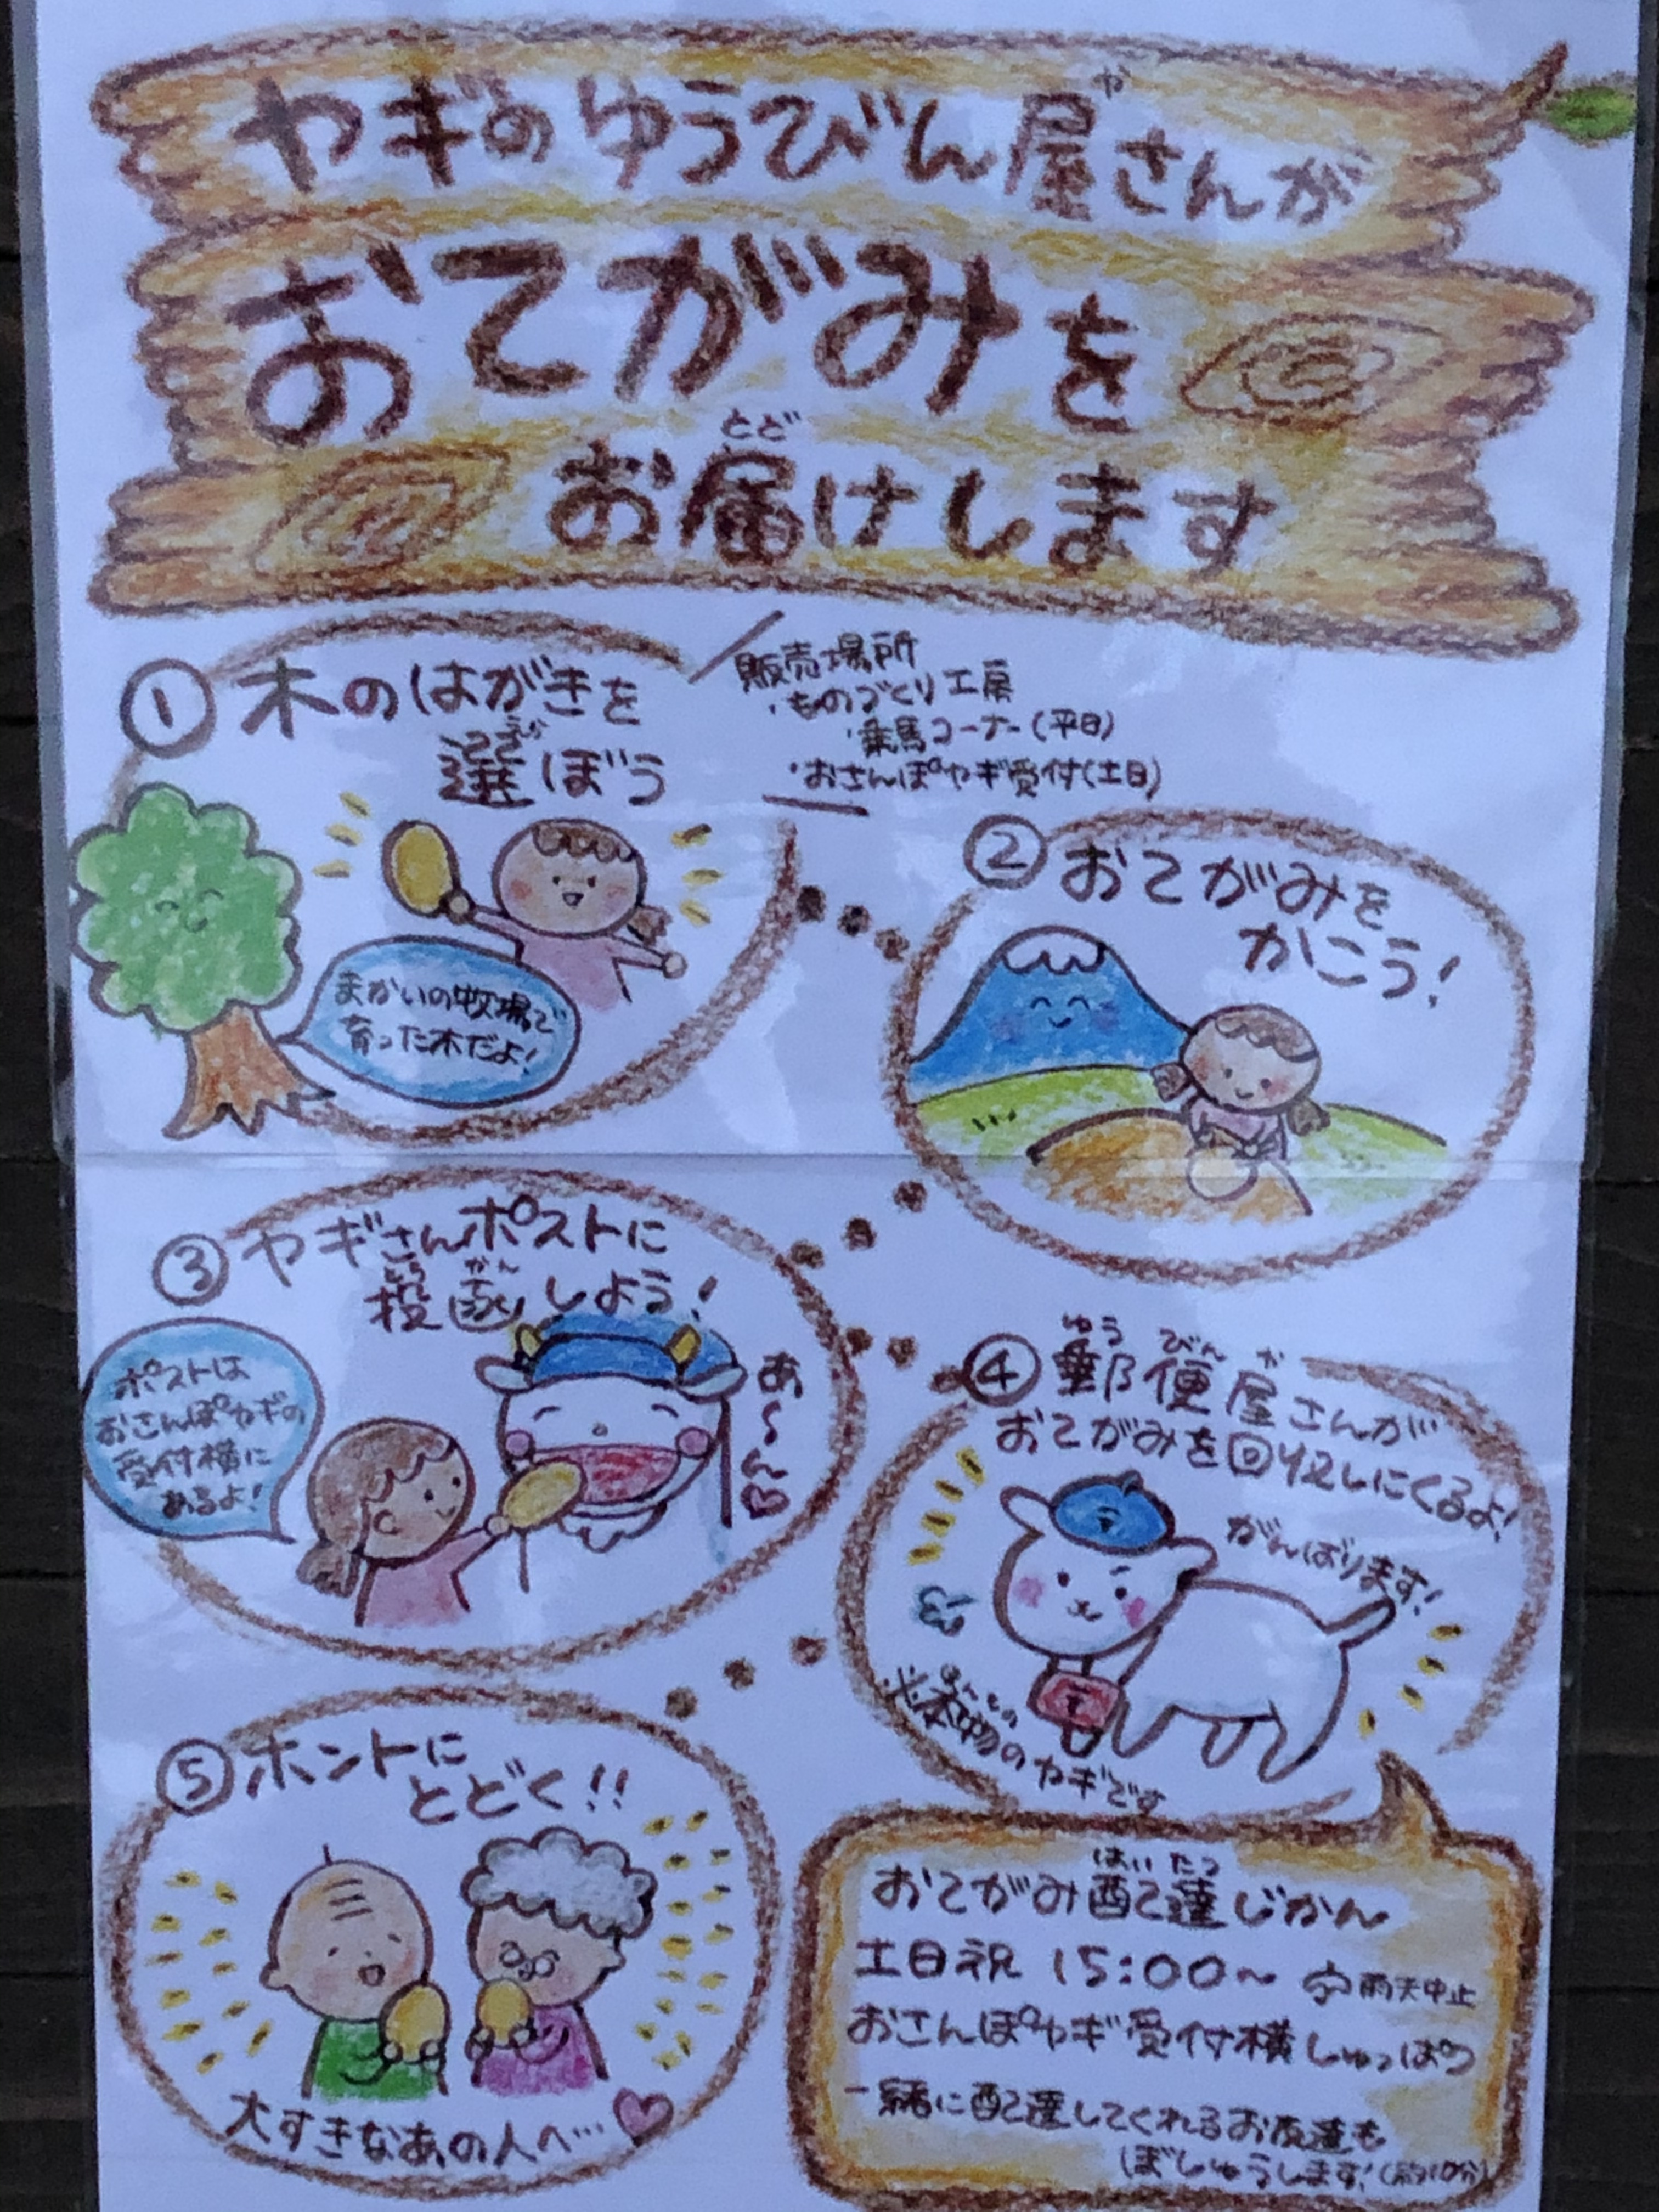 ヤギのゆうびん屋さんが
や
おてがみを
とど
お届けします
① 木のはがきを
えら
選ぼう
販売場所
・ものづくり工房
・乗馬コーナー(平日)
・おさんぽヤギ受付(土日)
まかいの牧場で
育った木だよ!
② おてがみを
かこう!
③ ヤギさんポストに
とう かん
投函しよう!
ポストは
おさんぽヤギの
受付横に
あるよ!
あ〜ん♡
ゆう びん や
④ 郵便屋さんが
おてがみを回収しにくるよ!
がんばります!
ほんもの
※本物のヤギです
⑤ ホントに
とどく!!
大すきなあの人へ…
はい たつ
おてがみ配達じかん
土日祝 15:00〜 雨天中止
おさんぽヤギ受付横しゅっぱつ
一緒に配達してくれるお友達も
ぼしゅうします!(約10分)